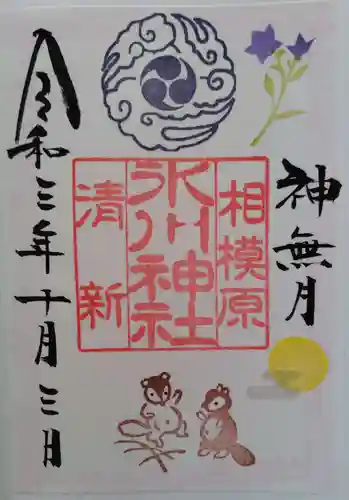 神無月
相模原
氷川神社
清新
令和三年十月三日